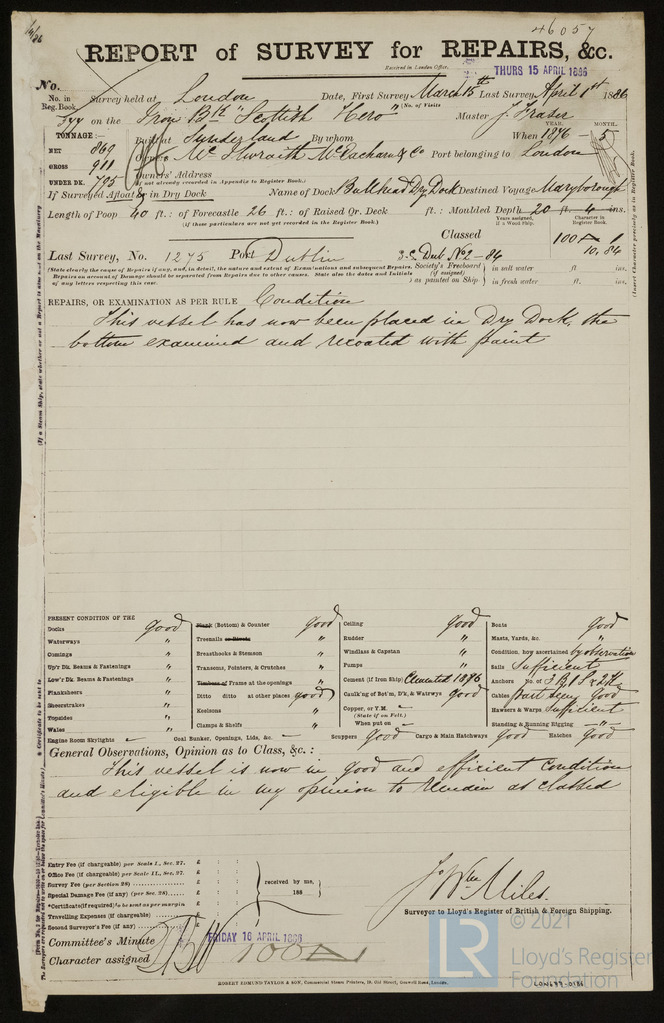 46057
REPORT of SURVEY for REPAIRS, &c.
Received in London Office,
THURS 15 APRIL 1886
No.
No. in Reg. Book.
Survey held at London Date, First Survey March 15th Last Survey April 1st 1886
(No. of Visits
on the Iron Bk "Scottish Hero" Master J. Fraser
TONNAGE:— Built at Sunderland By whom When 1876 — 5
YEAR. MONTH.
NET 869
GROSS 911
UNDER DK. 795
Owners Mc Ilwraith McEacharn & Co Port belonging to London
Owners' Address
(If not already recorded in Appendix to Register Book.)
If Surveyed Afloat or in Dry Dock Name of Dock Bullhead Dry Dock Destined Voyage Maryborough
Length of Poop 40 ft.: of Forecastle 26 ft.: of Raised Qr. Deck ft.: Moulded Depth 20 ft. 4 ins.
(If these particulars are not yet recorded in the Register Book.)
Years assigned, if a Wood Ship.
Character in Register Book.
Classed 100 A 1
10, 84
Last Survey, No. 1275 Port Dublin
S.S. Dub. No 2 - 84
(State clearly the cause of Repairs if any, and, in detail, the nature and extent of Examinations and subsequent Repairs.
Repairs on account of Damage should be separated from Repairs due to other causes. State also the dates and initials
of any letters respecting this case.)
Society's Freeboard (if assigned) as painted on Ship
in salt water ft. ins.
in fresh water ft. ins.
REPAIRS, OR EXAMINATION AS PER RULE Condition
This vessel has now been placed in Dry Dock, the
bottom examined and recoated with paint
(If a Steam Ship, state whether or not a Report is also sent on the Machinery
(Insert Character precisely as in Register Book.
PRESENT CONDITION OF THE
Decks good
Waterways "
Comings "
Up'r Dk. Beams & Fastenings "
Low'r Dk. Beams & Fastenings "
Planksheers "
Sheerstrakes "
Topsides "
Wales "
Engine Room Skylights
Plank (Bottom) & Counter good
Treenails or Rivets "
Breasthooks & Stemson "
Transoms, Pointers, & Crutches "
Timbers of Frame at the openings "
Ditto ditto at other places good
Keelsons "
Clamps & Shelfs "
Coal Bunker, Openings, Lids, &c.
Ceiling good
Rudder "
Windlass & Capstan "
Pumps "
Cement (if Iron Ship) Cemented 1876
Caulk'ng of Bot'm, D'k, & Watrwys good
Copper, or Y.M.
(State if on Felt.)
When put on
Scuppers Good Cargo & Main Hatchways Good
Boats good
Masts, Yards, &c. "
Condition, how ascertained by observation
Sails Sufficient
Anchors No. of 3 B, 1 S, & 2 K
Cables Part seen Good
Hawsers & Warps Sufficient
Standing & Running Rigging "
Hatches Good
General Observations, Opinion as to Class, &c.:
This vessel is now in good and efficient condition
and eligible in my opinion to remain as classed
Entry Fee (if chargeable) per Scale I., Sec. 27. £ : :
Office Fee (if chargeable) per Scale II., Sec. 27. £ : :
Survey Fee (per Section 28) £ : :
Special Damage Fee (if any) (per Sec. 28) £ : :
*Certificate (if required) to be sent as per margin £ : :
Travelling Expenses (if chargeable) £ : :
Second Surveyor's Fee (if any) £ : :
received by me,
188
Jo Wm Miles
Surveyor to Lloyd's Register of British & Foreign Shipping.
Committee's Minute FRIDAY 16 APRIL 1886
Character assigned 100 A
ROBERT EDMUND TAYLOR & SON, Commercial Steam Printers, 19, Old Street, Goswell Road, London.
LR
© 2021
Lloyd's Register
Foundation
LON699-0186